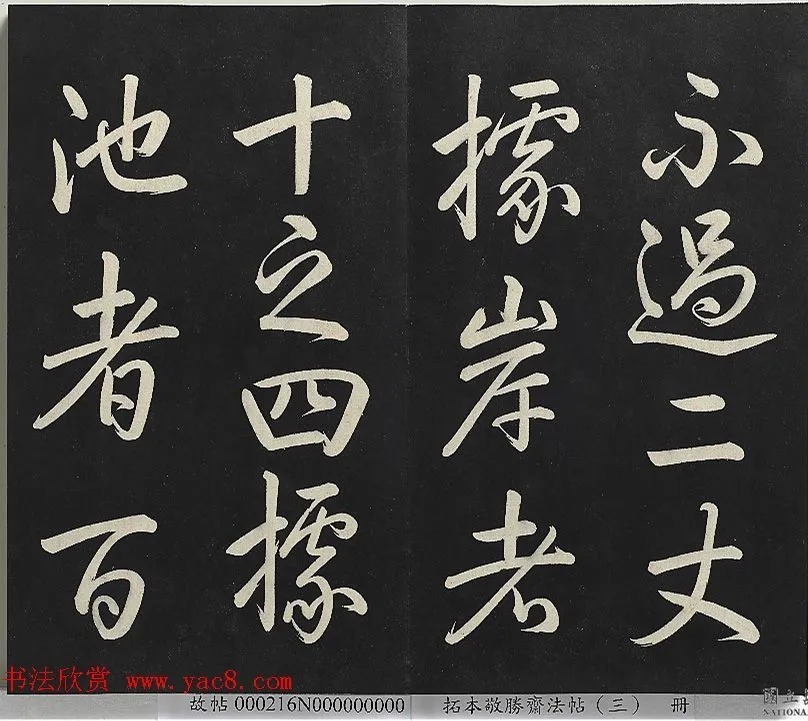 不過二丈
據岸者
十之四據
池者百
书法欣赏 www.yac8.com
故帖 000216N000000000 拓本敬勝齋法帖（三） 冊
國立
NATIONA